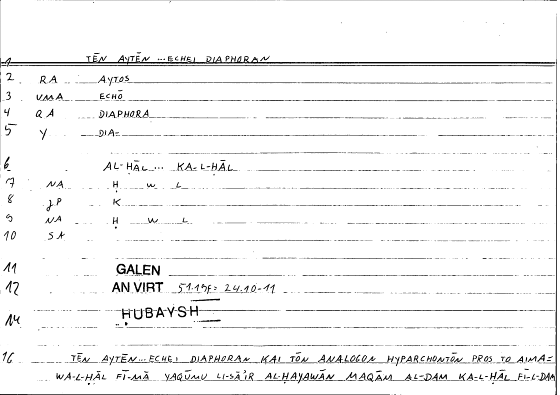 1 TĒN AYTĒN...ECHEI DIAPHORAN
2 RA AYTOS
3 VMA ECHŌ
4 QA DIAPHORA
5 Y DIA-
6 AL-ḤĀL... KA-L-ḤĀL
7 NA Ḥ W L
8 JP K
9 NA Ḥ W L
10 SA
11 GALEN
12 AN VIRT 51.15F= 24.10-11
14 ḤUBAYSH
16 TĒN AYTĒN...ECHEI DIAPHORAN KAI TŌN ANALOGON HYPARCHONTŌN PROS TO AIMA=
WA-L-ḤĀL FĪ-MĀ YAQŪMU LI-SĀ'IR AL-ḤAYAWĀN MAQĀM AL-DAM KA-L-ḤĀL FĪ-L-DAM